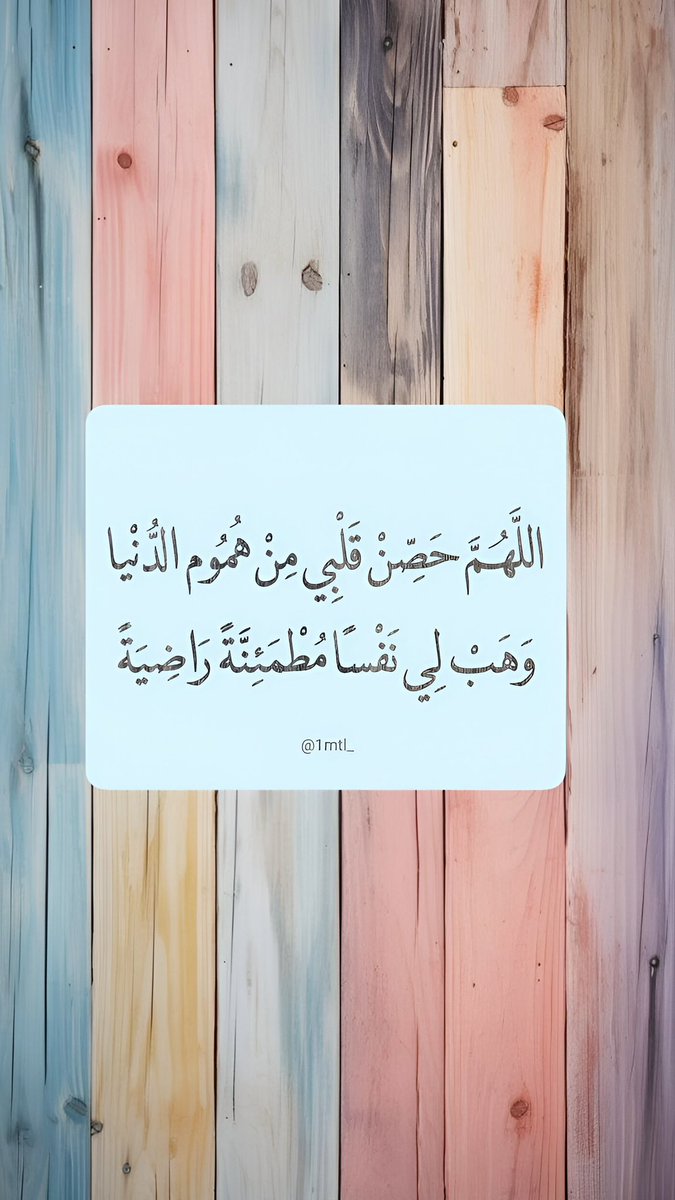 اللَّهُمَّ حَصِّنْ قَلْبِي مِنْ هُمُوم الدُّنْيا
وَهَبْ لِي نَفْسًا مُطْمَئِنَّةً رَاضِيَةً
@1mtl_